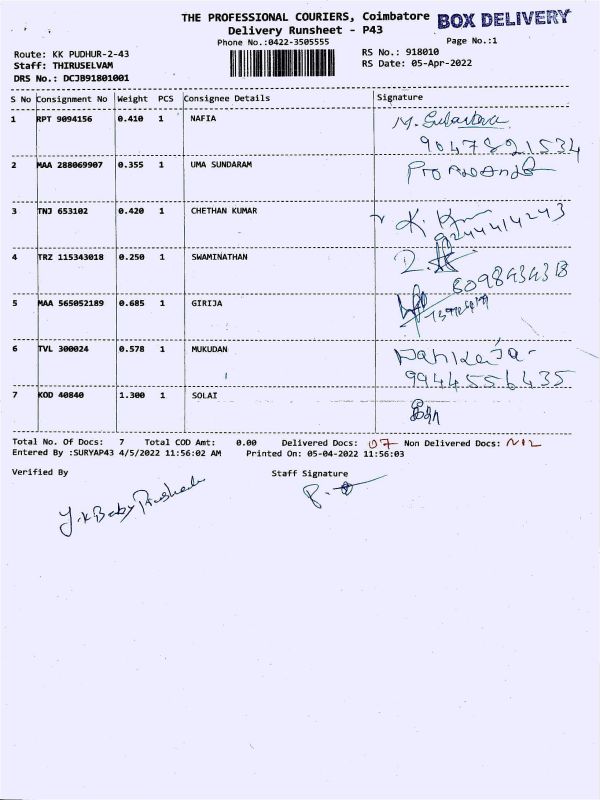 THE PROFESSIONAL COURIERS, Coimbatore BOX DELIVERY
Delivery Runsheet - P43
Phone No.:0422-3505555 Page No.:1
Route: KK PUDHUR-2-43 RS No.: 918010
Staff: THIRUSELVAM RS Date: 05-Apr-2022
DRS No.: DCJB91801001
S No Consignment No Weight PCS Consignee Details Signature
1 RPT 9094156 0.410 1 NAFIA
9047821534
2 MAA 288069907 0.355 1 UMA SUNDARAM
3 TNJ 653102 0.420 1 CHETHAN KUMAR
9244414243
4 TRZ 115343018 0.250 1 SWAMINATHAN
5 MAA 565052189 0.685 1 GIRIJA
6 TVL 300024 0.578 1 MUKUDAN
9944556435
7 KOD 40840 1.300 1 SOLAI
Total No. Of Docs: 7 Total COD Amt: 0.00 Delivered Docs: 07 Non Delivered Docs: NIL
Entered By :SURYAP43 4/5/2022 11:56:02 AM Printed On: 05-04-2022 11:56:03
Verified By Staff Signature